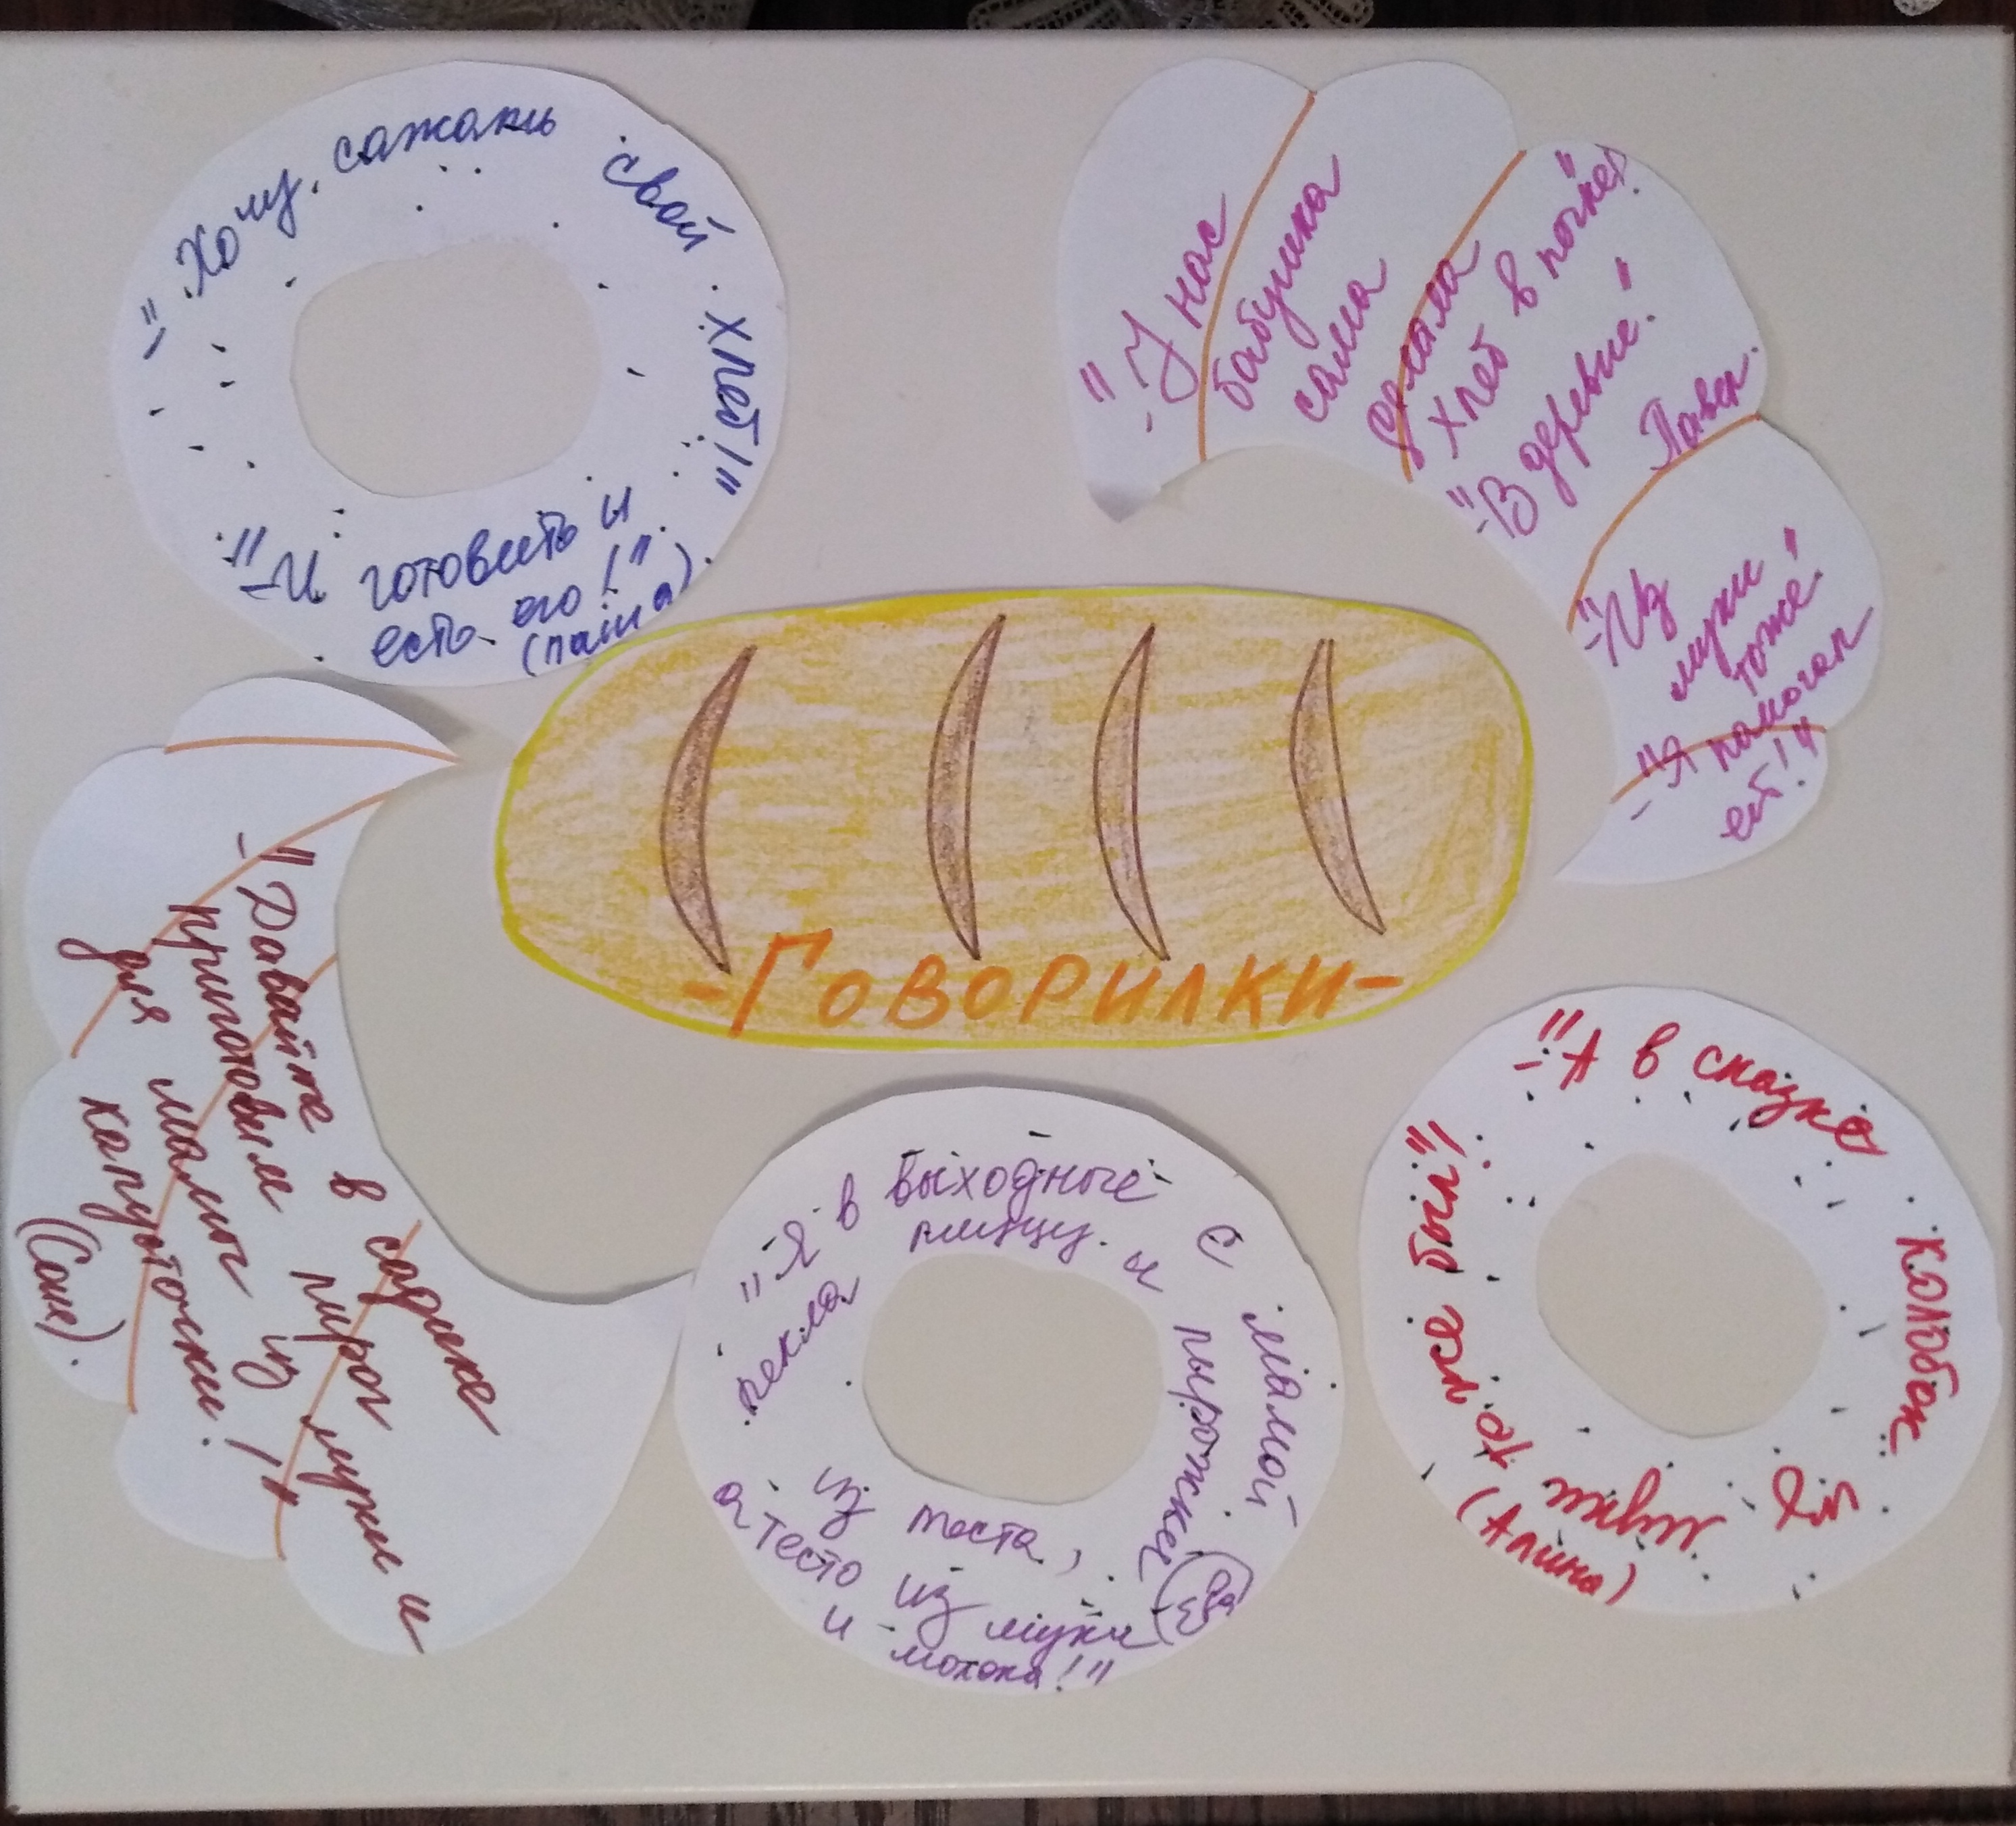 "- Хочу сажать свой хлеб!"
"- И готовить и
есть его!"
(паша)
"- У нас
бабушка
сама
делала
хлеб в почке!"
"- В деревне."
Павел.
"- Из
муки
тоже"
- "Я помогал
ей!"
-Говорилки-
- "Давайте в садике
приготовим пирог из муки и
для мамы
капусточки!"
(Саше).
"- Я в выходные с мамой
пекла пиццу и пырожки
из теста,
а тесто из муки
и молока!"
(Эва)
"- А в сказке колобок из муки тоже был!"
(Алина)